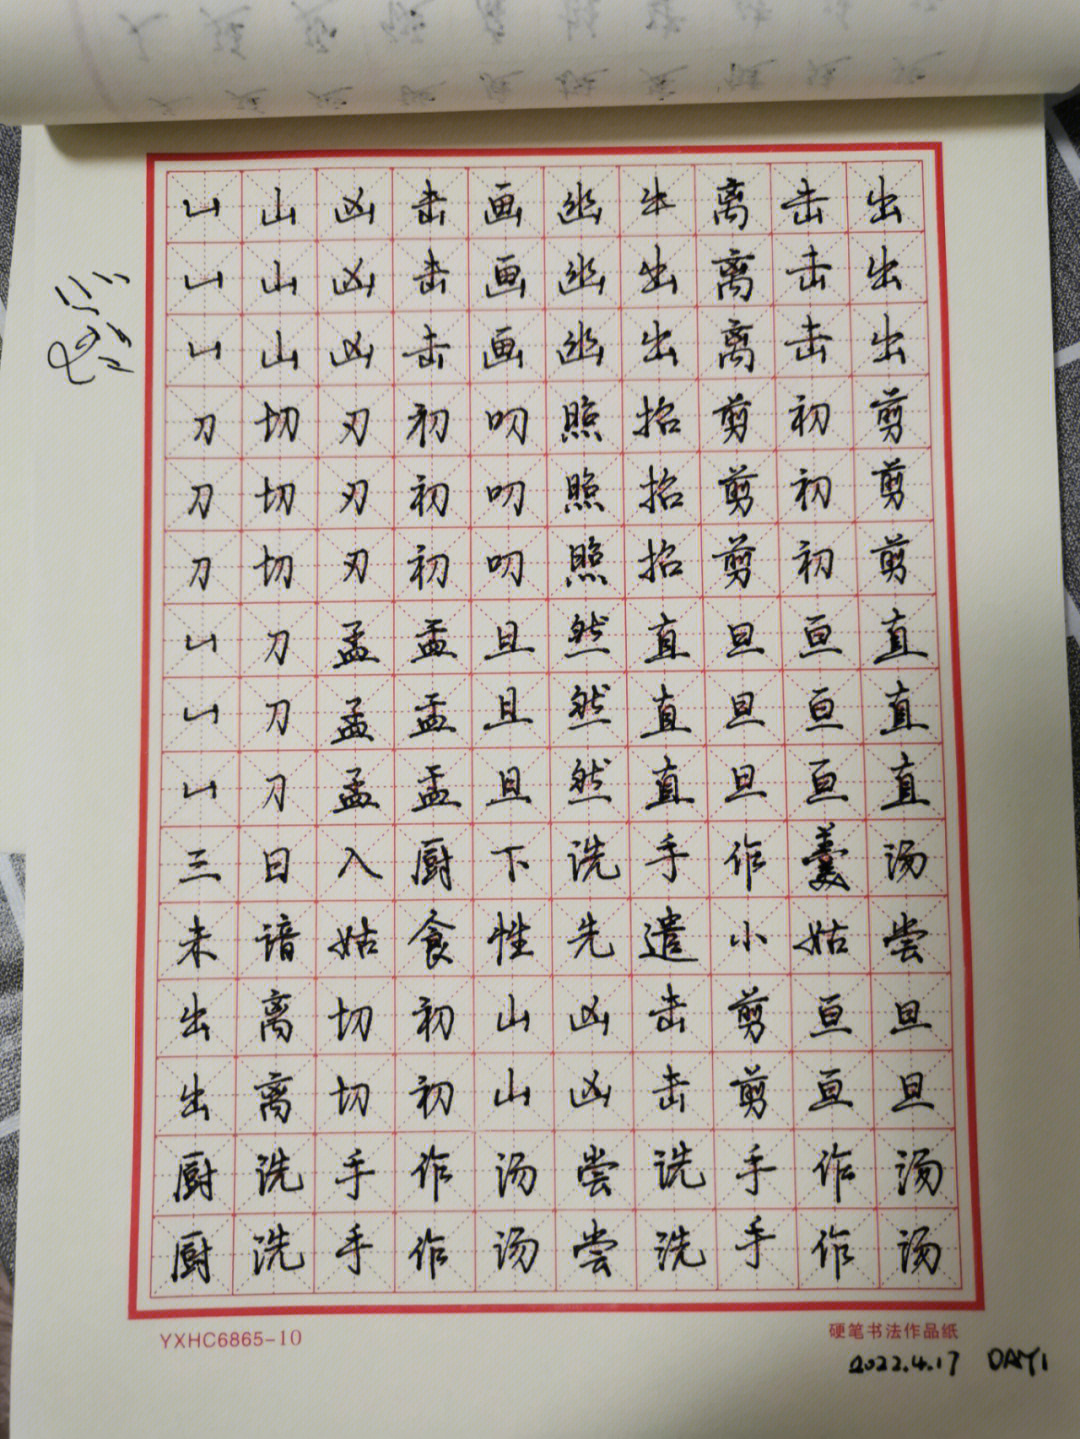 凵山凶击画幽牛离击出
凵山凶击画幽出离击出
凵山凶击画幽出离击出
刀切刃初叨照招剪初剪
刀切刃初叨照招剪初剪
刀切刃初叨照招剪初剪
凵刀孟盂且然直旦亘直
凵刀孟盂且然直旦亘直
凵刀孟盂且然直旦亘直
三日入厨下洗手作羹汤
未谙姑食性先遣小姑尝
出离切初山凶击剪亘旦
出离切初山凶击剪亘旦
厨洗手作汤尝洗手作汤
厨洗手作汤尝洗手作汤
YXHC6865-10
硬笔书法作品纸
2022.4.17 DAY1